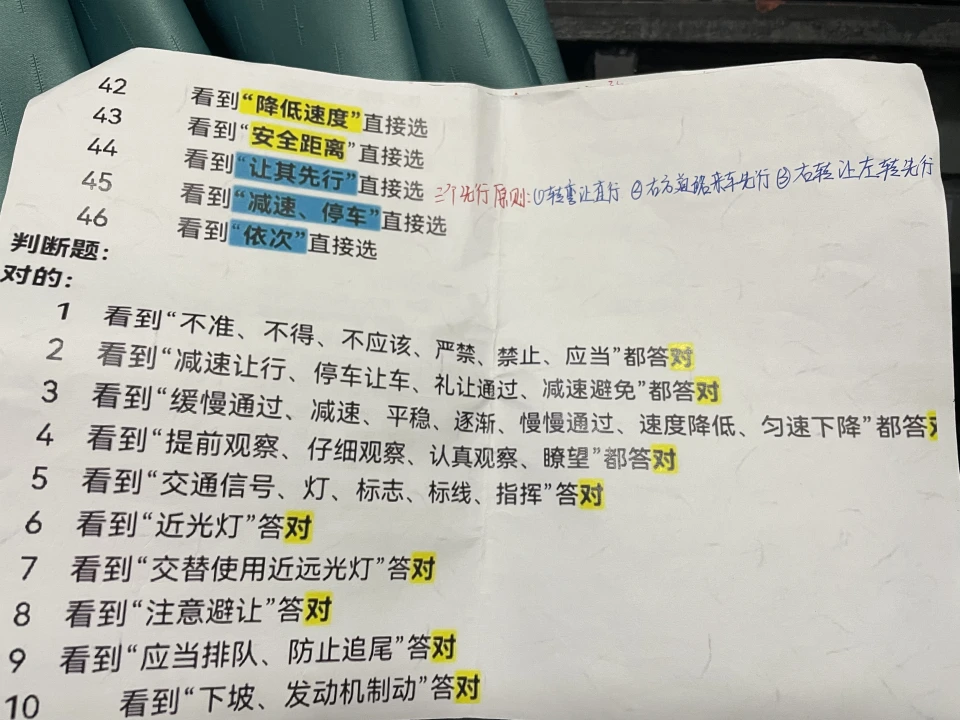 42 看到“降低速度”直接选
43 看到“安全距离”直接选
44 看到“让其先行”直接选 三个先行原则:①转弯让直行 ②右方道路来车先行 ③右转让左转先行
45 看到“减速、停车”直接选
46 看到“依次”直接选
判断题:
对的:
1 看到“不准、不得、不应该、严禁、禁止、应当”都答对
2 看到“减速让行、停车让车、礼让通过、减速避免”都答对
3 看到“缓慢通过、减速、平稳、逐渐、慢慢通过、速度降低、匀速下降”都答对
4 看到“提前观察、仔细观察、认真观察、瞭望”都答对
5 看到“交通信号、灯、标志、标线、指挥”答对
6 看到“近光灯”答对
7 看到“交替使用近远光灯”答对
8 看到“注意避让”答对
9 看到“应当排队、防止追尾”答对
10 看到“下坡、发动机制动”答对